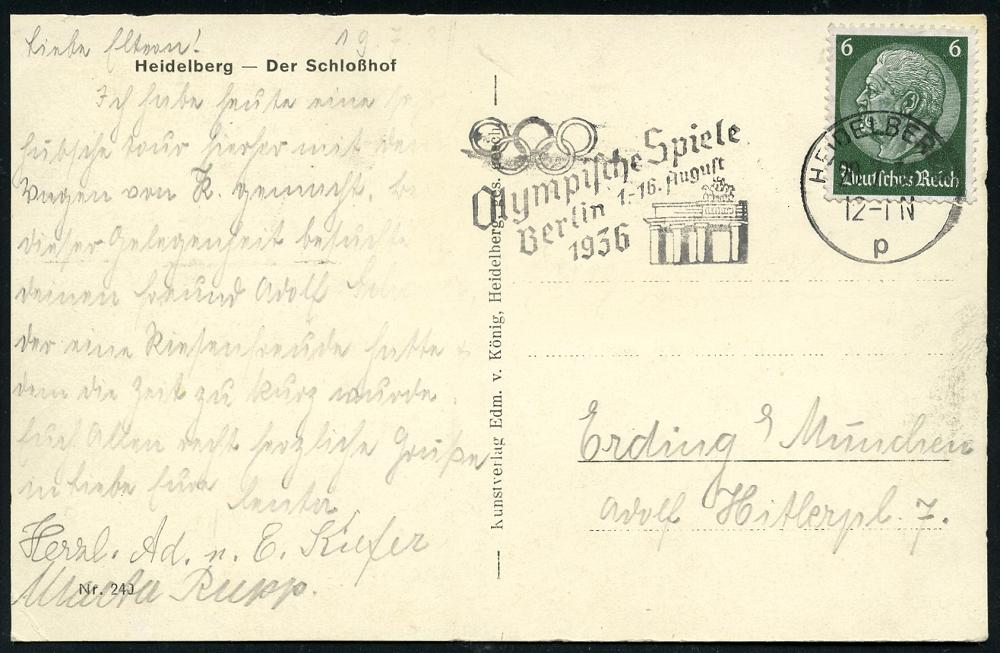 Liebe Eltern!
Heidelberg — Der Schloßhof
Ich habe heute eine
hübsche Tour hierher mit dem
Wagen von K. gemacht.
dieser Gelegenheit besuchte
deinen Freund Adolf
der eine Riesenfreude hatte
dem die Zeit zu kurz wurde.
Euch Allen recht herzliche Grüße
in Liebe Eure
Herzl. Ad. u. E. Kiefer
Rupp.
Nr. 240
Kunstverlag Edm. v. König, Heidelberg
Olympische Spiele
Berlin 1.-16. August
1936
6 6
Deutsches Reich
HEIDELBERG
12-1 N
p
Erding München
Adolf Hitlerpl. 7.